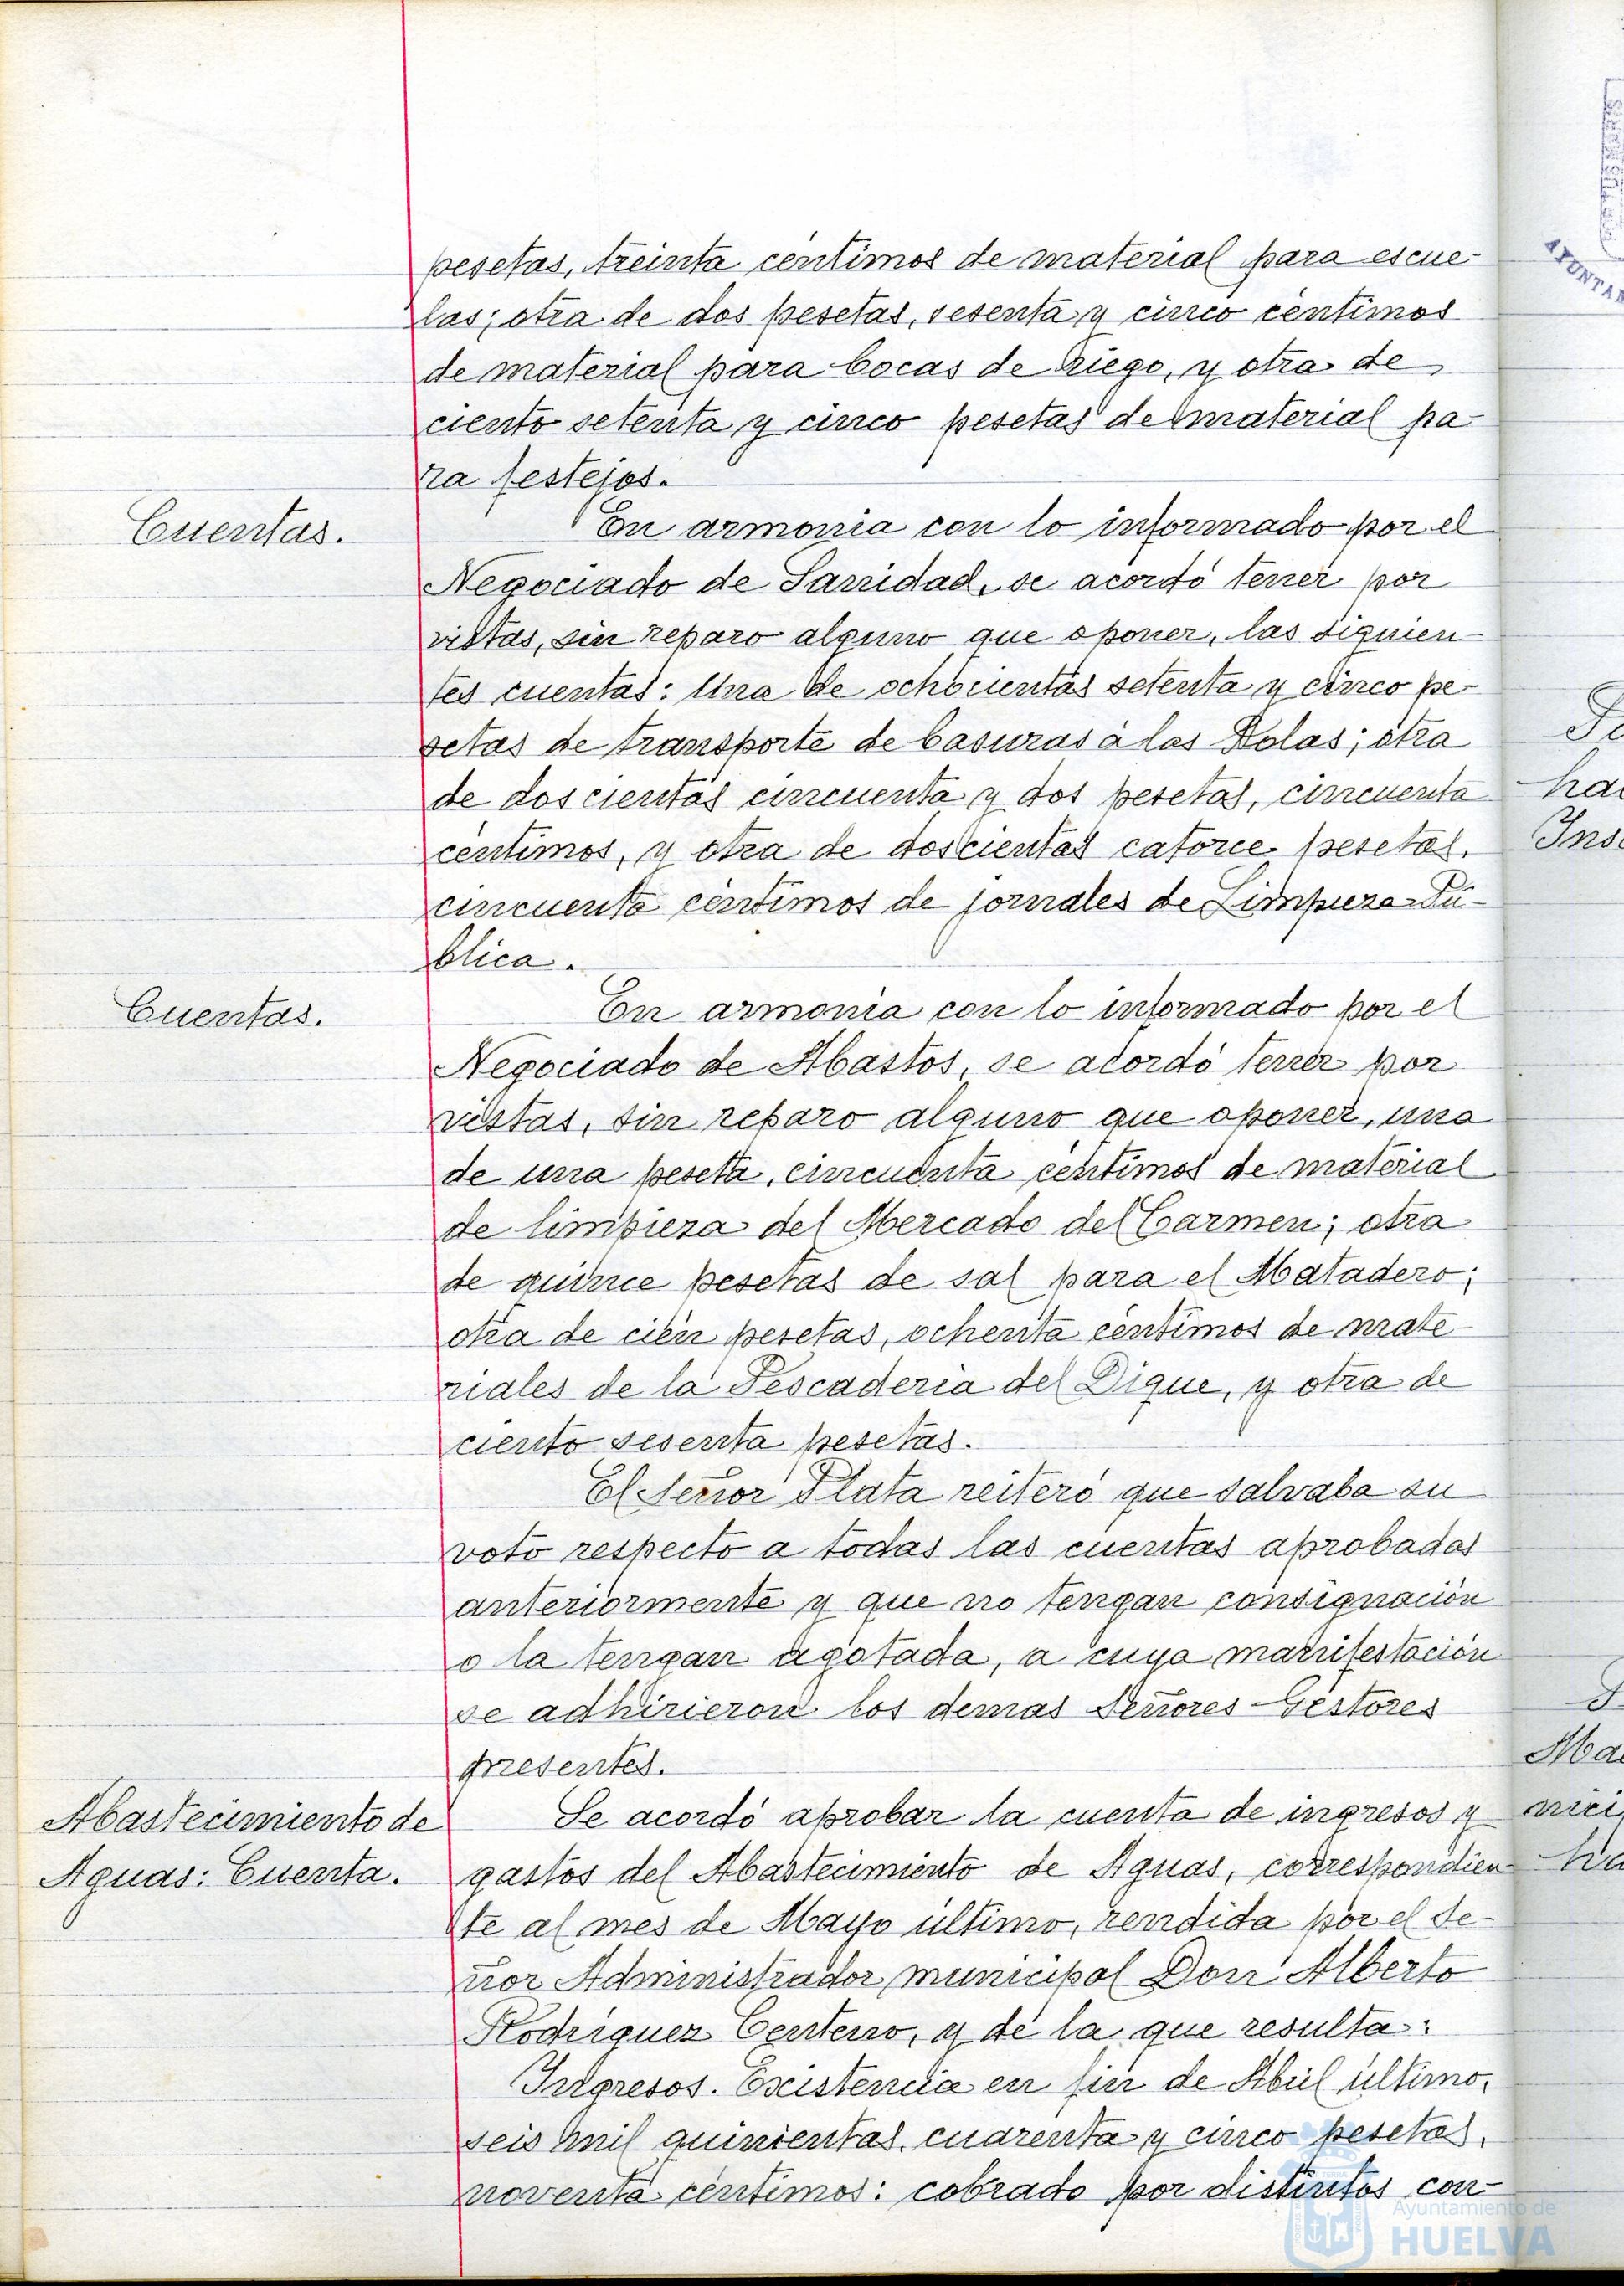 pesetas, treinta céntimos de material para escue-
las; otra de dos pesetas, sesenta y cinco céntimos
de material para bocas de riego, y otra de
ciento setenta y cinco pesetas de material pa-
ra festejos.
Cuentas.
En armonía con lo informado por el
Negociado de Sanidad, se acordó tener por
vistas, sin reparo alguno que oponer, las siguien-
tes cuentas: Una de ochocientas setenta y cinco pe-
setas de transporte de basuras a las Kolas; otra
de doscientas cincuenta y dos pesetas, cincuenta
céntimos, y otra de doscientas catorce pesetas,
cincuenta céntimos de jornales de Limpieza Pú-
blica.
Cuentas.
En armonía con lo informado por el
Negociado de Abastos, se acordó tener por
vistas, sin reparo alguno que oponer, una
de una peseta, cincuenta céntimos de material
de limpieza del Mercado del Carmen; otra
de quince pesetas de sal para el Matadero;
otra de cien pesetas, ochenta céntimos de mate-
riales de la Pescadería del Dique, y otra de
ciento sesenta pesetas.
El Señor Plata reiteró que salvaba su
voto respecto a todas las cuentas aprobadas
anteriormente y que no tengan consignación
o la tengan agotada, a cuya manifestación
se adhirieron los demas Señores Gestores
presentes.
Abastecimiento de
Aguas: Cuenta.
Se acordó aprobar la cuenta de ingresos y
gastos del Abastecimiento de Aguas, correspondien-
te al mes de Mayo último, rendida por el Se-
ñor Administrador municipal Don Alberto
Rodríguez Centeno, y de la que resulta:
Ingresos. Existencia en fin de Abril último,
seis mil quinientas cuarenta y cinco pesetas,
noventa céntimos: cobrado por distintos con-
Ayuntamiento de
HUELVA